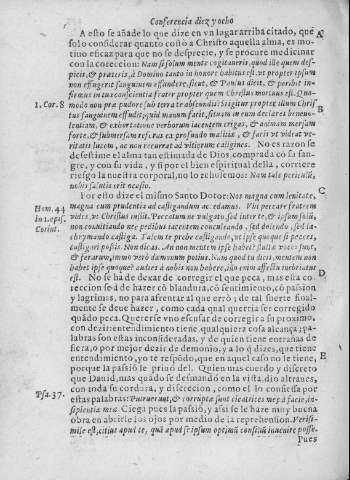 Conferencia diez y ocho
A esto se añade lo que dize en vn lugar arriba citado, quē
solo considerar quanto costò a Christo aquella alma, es mo-
tiuo eficaz para que no se desprecie, y se procure medicinar
con la correccion: Nam si solum mente cogitaueris quod ille quem des-
picit, & præteris, à Domino tanto in honore habitus est, vt propter ipsum
non effugerit sanguinem effundere.
1. Cor. 8
modo non præ pudore sub terra te abscondis? Si igitur propter illum Chris
tus sanguinem effudit, quid manum facit, si tu
uolentiam, & exhortatione verborum iacentem erigas, & animam mersam
forte, & submersam reseras ex profundo malitiæ, & facis vt videat ve-
ritatis lucem, ac non recurrat ad vitiorum caligines. No es razon se
desestime el alma tan estimada de Dios, comprada cō su san-
gre, y con su vida, y si por el bien espiritual della, corriere
riesgo la nuestra corporal, no lo rehusemos: Nam tale periculū,
nobis salutis erit occasio.
Por esto dize el mismo Santo Dotor: Nos magna cum lenitate,
Hom. 44
in 1. epis.
Corint.
magna cum prudentia ad castigandum accedamus. Vbi peccare fratrem
vides, vt Christus iussit. Peccatum ne vulgato, sed inter te, & ipsum solū,
non conuitiando nec pedibus iacentem conculcando, sed dolendo, sed la-
chrymando castiga. Talem te præbe castigando, vt ipse quoque si pecces,
castigari possis. Non dicas. An non mentem ipse habet? stultæ voces sunt,
& feraru, immo verò dæmonum potius. Nam quod tu dicis, mentem non
habet ipse quoque? audet à nobis non habere, sin enim affectu moriatur
est. No se ha de dexar de corregir el que peca, mas esta co-
rreccion se à de hazer cō blandura, cō sentimiento, cō passion
y lagrimas, no para afrentar al que errò; de tal suerte final-
mente se deue hazer, como cada qual querria ser corregido
quādo peca. Quererse vno escusar de corregir a su proximo,
con dezir: entendimiento tiene qualquiera cosa alcança; pa-
labras son estas inconsideradas, y de quien tiene entrañas de
fiera, o por mejor dezir de demonio, y a lo q̄ dizes, que tiene
entendimiento, yo te respōdo, que en aquel caso no le tiene,
porque la passiō se priuò del. Quien mas cuerdo y discreto
que Dauid, mas quādo se desmandó en la vista, dio altraues,
con toda su cordura, y discrecion, como el lo confiessa por
Psa. 37.
estas palabras: Putruerunt, & corruptæ sunt cicatrices meæ à facie, in-
sipientiæ meæ. Ciega pues la passiō, y assi se le haze muy buena
obra en abrirle los ojos por medio de la reprehension. Verisi-
mile est, citius apud te, quā apud se ipsum optimū consiliū inuenire posse.
Pues